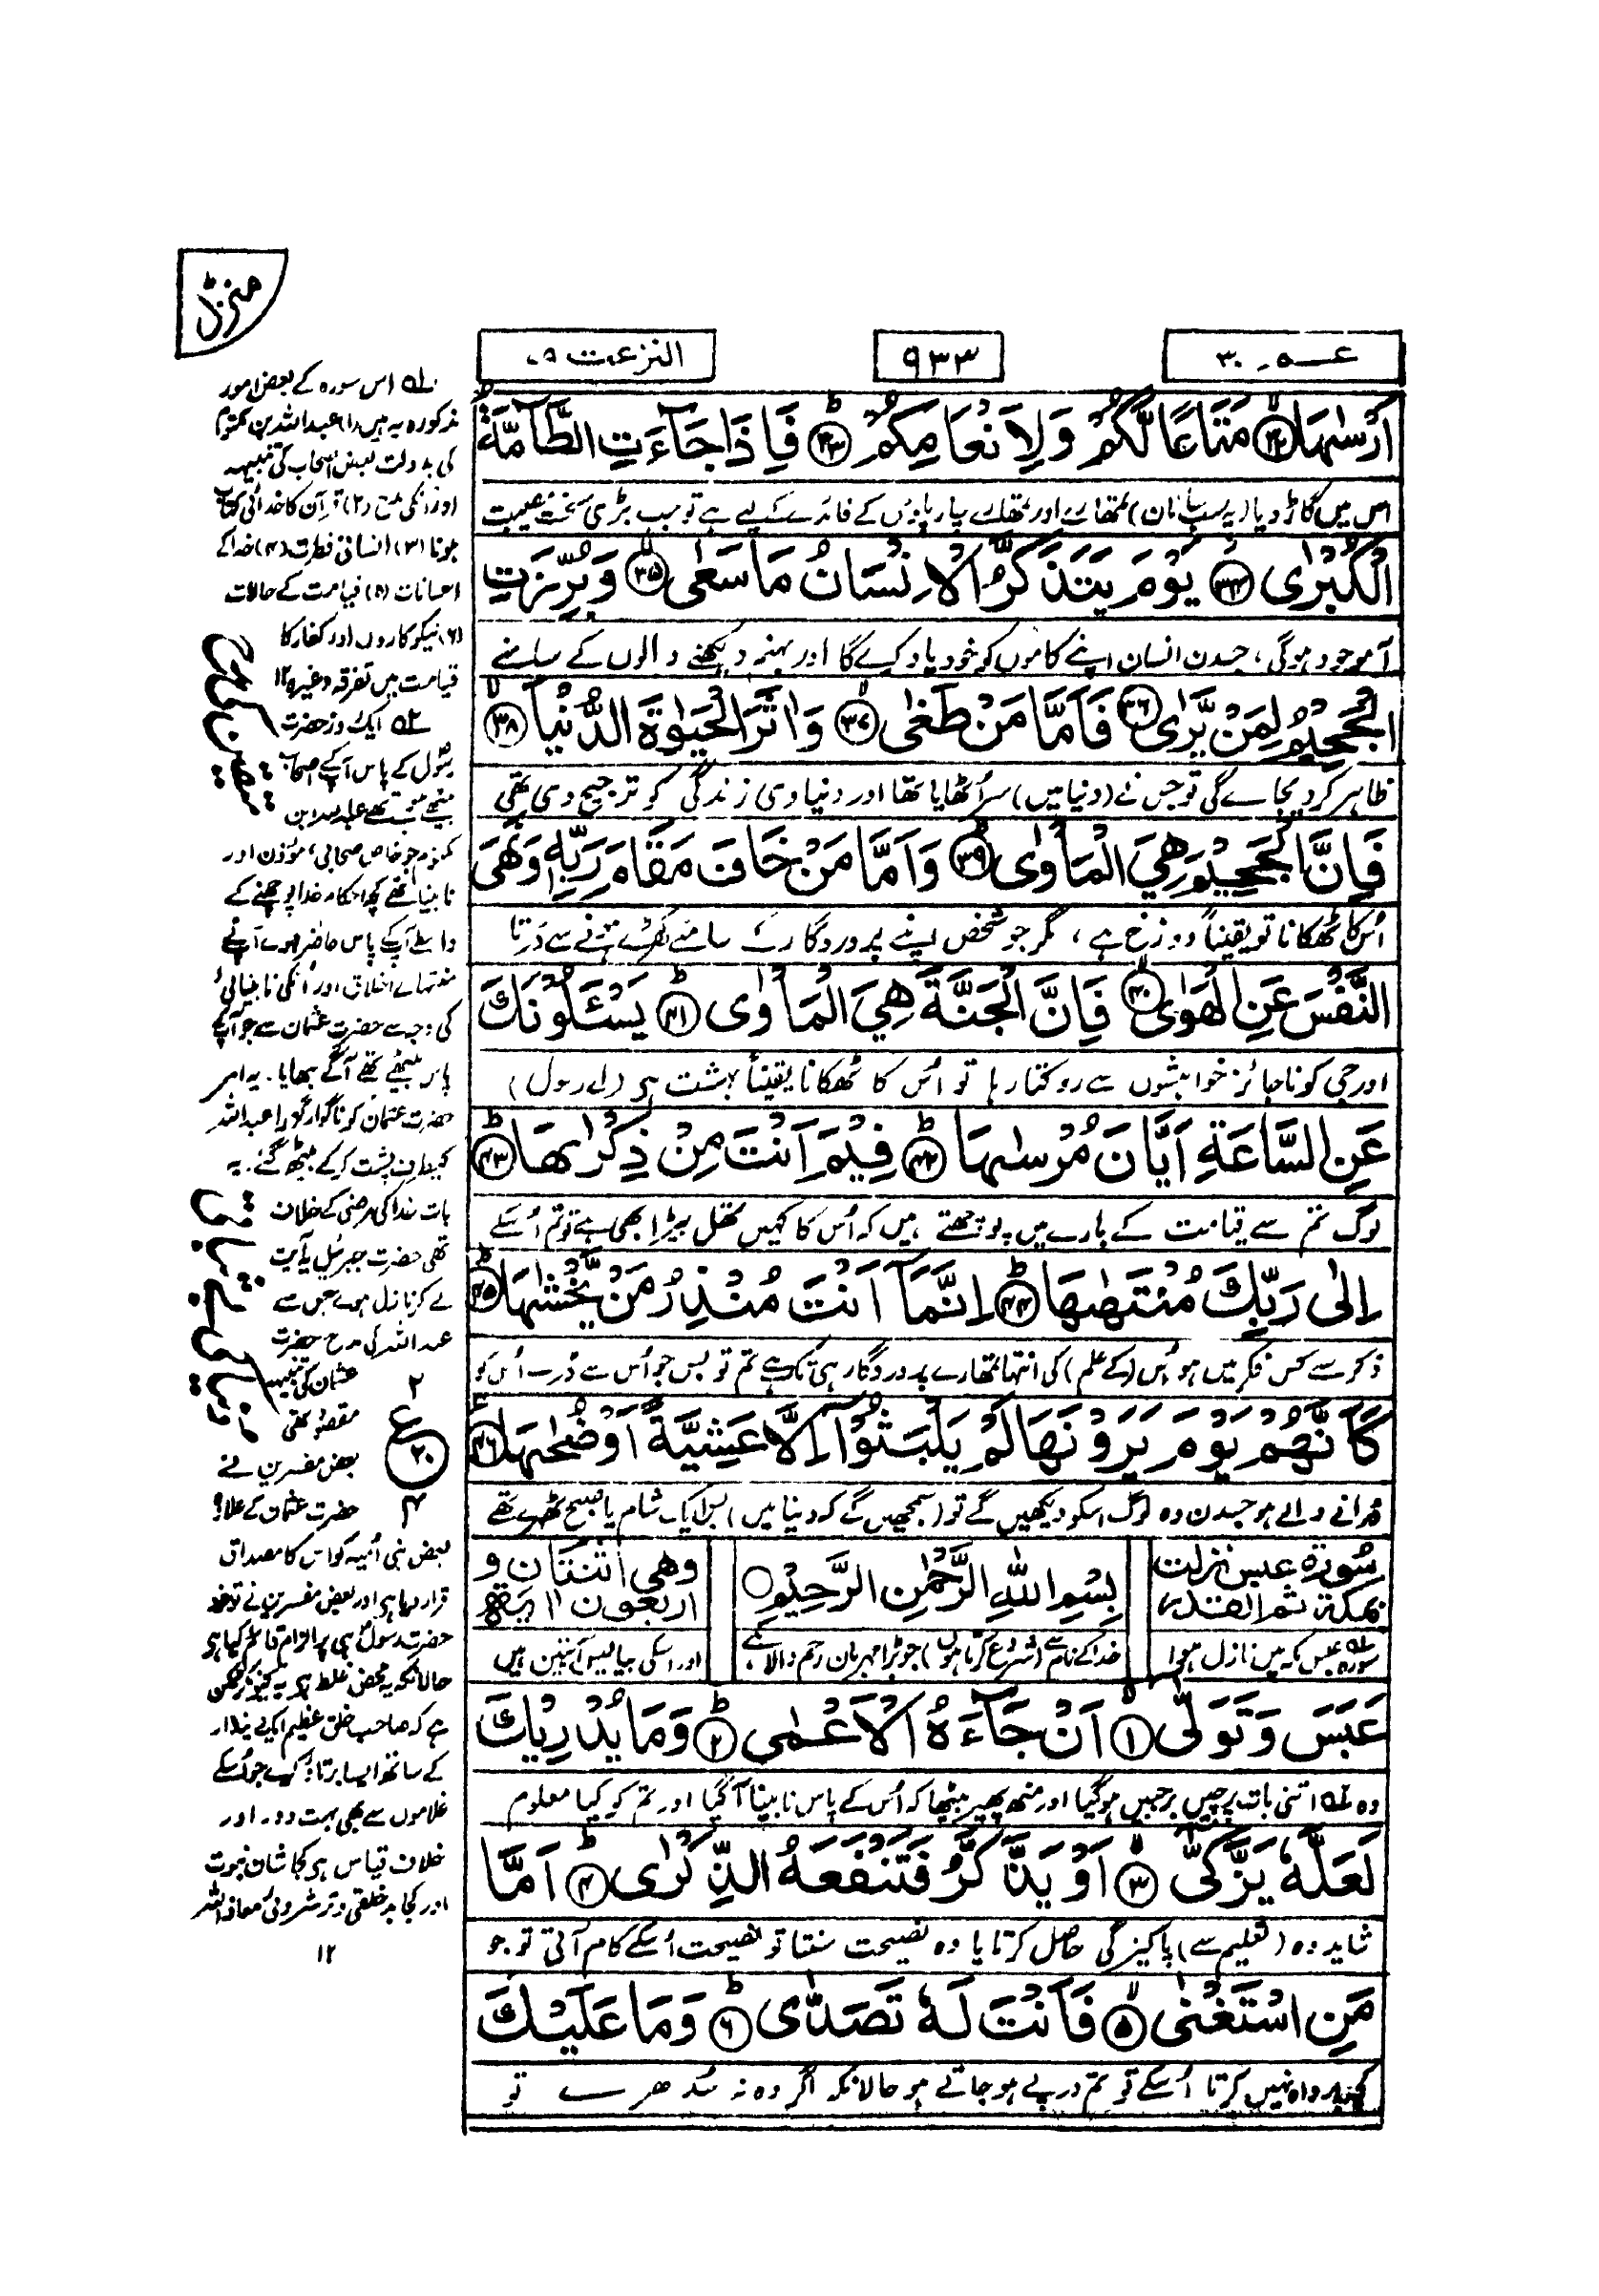 عـــم ۳۰
۹۳۳
النزعت ۷۹
اَرْسٰىهَا ﴿۳۲﴾ مَتَاعًا لَّكُمْ وَلِاَنْعَامِكُمْ ﴿۳۳﴾ فَاِذَا جَآءَتِ الطَّآمَّةُ
اس میں گاڑ دیا (یہ سب سامان) تمھارے اور تمھارے چارپاؤں کے فائدے کے لیے ہے تو جب بڑی سخت مصیبت
الْكُبْرٰى ﴿۳۴﴾ يَوْمَ يَتَذَكَّرُ الْاِنْسَانُ مَا سَعٰى ﴿۳۵﴾ وَبُرِّزَتِ
آ موجود ہوگی، جسدن انسان اپنے کاموں کو خود یاد کرے گا اور جہنم دیکھنے والوں کے سامنے
الْجَحِيْمُ لِمَنْ يَّرٰى ﴿۳۶﴾ فَاَمَّا مَنْ طَغٰى ﴿۳۷﴾ وَاٰثَرَ الْحَيٰوةَ الدُّنْيَا ﴿۳۸﴾
ظاہر کر دیجاے گی تو جس نے (دنیا میں) سر اُٹھایا تھا اور دنیاوی زندگی کو ترجیح دی تھی
فَاِنَّ الْجَحِيْمَ هِيَ الْمَاْوٰى ﴿۳۹﴾ وَاَمَّا مَنْ خَافَ مَقَامَ رَبِّهٖ وَنَهَى
اُس کا ٹھکانا تو یقیناً دوزخ ہے، مگر جو شخص اپنے پروردگار کے سامنے کھڑے ہونے سے ڈرتا
النَّفْسَ عَنِ الْهَوٰى ﴿۴۰﴾ فَاِنَّ الْجَنَّةَ هِيَ الْمَاْوٰى ﴿۴۱﴾ يَسْـَٔلُوْنَكَ
اور جی کو ناجائز خواہشوں سے روکتا رہا تو اُس کا ٹھکانا یقیناً بہشت ہی (اے رسول)
عَنِ السَّاعَةِ اَيَّانَ مُرْسٰىهَا ﴿۴۲﴾ فِيْمَ اَنْتَ مِنْ ذِكْرٰىهَا ﴿۴۳﴾
لوگ تم سے قیامت کے بارے میں پوچھتے ہیں کہ اُس کا کہیں تھل بیڑا بھی ہے تو تم اُسکے
اِلٰى رَبِّكَ مُنْتَهٰىهَا ﴿۴۴﴾ اِنَّمَا اَنْتَ مُنْذِرُ مَنْ يَّخْشٰىهَا ﴿۴۵﴾
ذکر سے کس فکر میں ہو اُس (کے علم) کی انتہا تمھارے پروردگار ہی تک ہے تم تو بس جو اُس سے ڈرے اُس کو
كَاَنَّهُمْ يَوْمَ يَرَوْنَهَا لَمْ يَلْبَثُوْٓا اِلَّا عَشِيَّةً اَوْ ضُحٰىهَا ﴿۴۶﴾
ڈرانے والے ہو جسدن وہ لوگ اسکو دیکھیں گے تو (سمجھیں گے کہ دنیا میں) بس ایک شام یا صبح ٹھہرے تھے
سُورة عبس نزلت
بمكة ثم القدر
بِسْمِ اللّٰهِ الرَّحْمٰنِ الرَّحِيْمِ
وهي اثنتان و
اربعون اٰية
سورہ عبس مکہ میں نازل ہوا
خدا کے نام سے (شروع کرتا ہوں) جو بڑا مہربان رحم والا ہے
اور اسکی بیالیس آیتیں ہیں
عَبَسَ وَتَوَلّٰى ﴿۱﴾ اَنْ جَآءَهُ الْاَعْمٰى ﴿۲﴾ وَمَا يُدْرِيْكَ
وہ اتنی بات پر چیں بر جبیں ہو گیا اور منھ پھیر بیٹھا کہ اُس کے پاس نابینا آ گیا اور تم کو کیا معلوم
لَعَلَّهٗ يَزَّكّٰى ﴿۳﴾ اَوْ يَذَّكَّرُ فَتَنْفَعَهُ الذِّكْرٰى ﴿۴﴾ اَمَّا
شاید وہ (تعلیم سے) پاکیزگی حاصل کرتا یا وہ نصیحت سنتا تو نصیحت اُسکے کام آتی تو جو
مَنِ اسْتَغْنٰى ﴿۵﴾ فَاَنْتَ لَهٗ تَصَدّٰى ﴿۶﴾ وَمَا عَلَيْكَ
کچھ پرواہ نہیں کرتا اُسکے تو تم درپے ہو جاتے ہو حالانکہ اگر وہ نہ سُدھرے تو
منزل
اس سورہ کے بعض امور
مذکورہ یہ ہیں (۱) عبداللہ بن مکتوم
کی بدولت بعض اصحاب کی تنبیہہ
اور انکی مدح (۲) قرآن کا خدائی کتاب
ہونا (۳) انسانی فطرت (۴) خدا کے
احسانات (۵) قیامت کے حالات
(۶) نیکوکاروں اور کفار کا
قیامت میں تفرقہ وغیرہ ۱۲
ایک روز حضرت
رسولؐ کے پاس آپکے اصحاب
بیٹھے ہوے تھے عبداللہ ابن
مکتوم جو خاص صحابی، موذن اور
نابینا تھے کچھ احکام خدا پوچھنے کے
واسطے آپکے پاس حاضر ہوے آپنے
منتہاے اخلاق اور اُنکی نابینائی
کی وجہ سے حضرت عثمان سے جو آپکے
پاس بیٹھے تھے آگے بٹھایا۔ یہ امر
حضرت عثمان کو ناگوار گزرا عبداللہ
کیطرف پشت کرکے بیٹھ گئے۔ یہ
بات خدا کی مرضی کے خلاف
تھی حضرت جبرئیل یہ آیت
لے کر نازل ہوے جس سے
عبداللہ کی مدح حضرت
عثمان کی تنبیہہ
مقصود تھی
۲
ع
۲۰
۳
بعض مفسرین نے
حضرت عثمان کے علاوہ
بعض بنی اُمیہ کو اس کا مصداق
قرار دیا ہی اور بعض مفسرین نے تو خود
حضرت رسولؐ ہی پر الزام قائم کیا ہی
حالانکہ یہ محض غلط ہی یہ کیونکر ممکن
ہے کہ صاحب خلق عظیم ایک دیندار
کے ساتھ ایسا برتاؤ کرے جو اُسکے
غلاموں سے بھی بہت دور اور
خلاف قیاس ہی کجا شان نبوت
اور کجا بد خلقی و ترشروئی معاذاللہ
۱۲